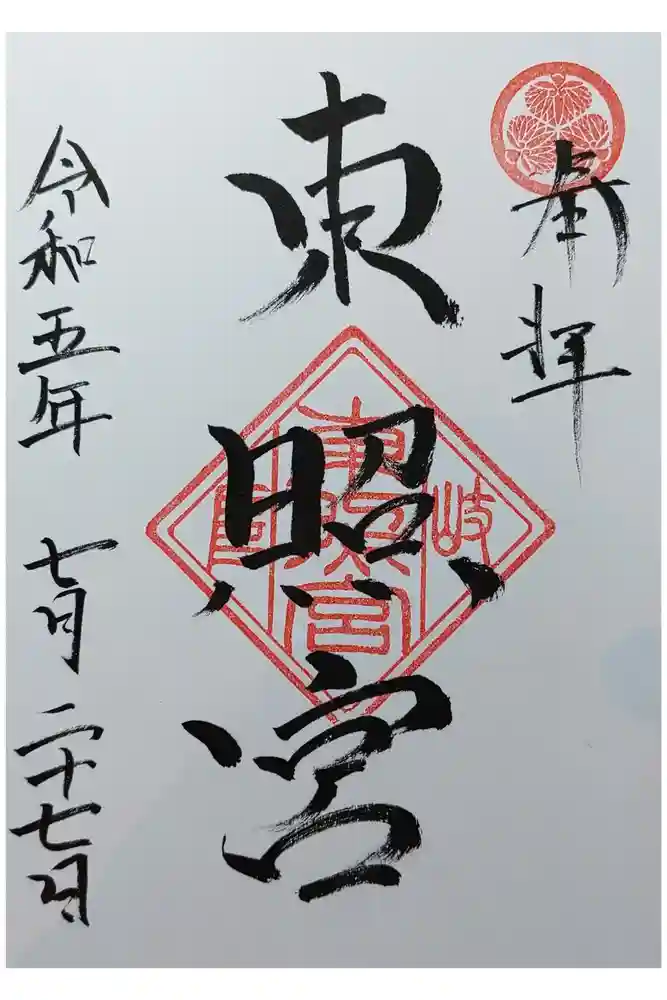 奉拝
東照宮
岐
東照宮
令和五年 七月二十七日